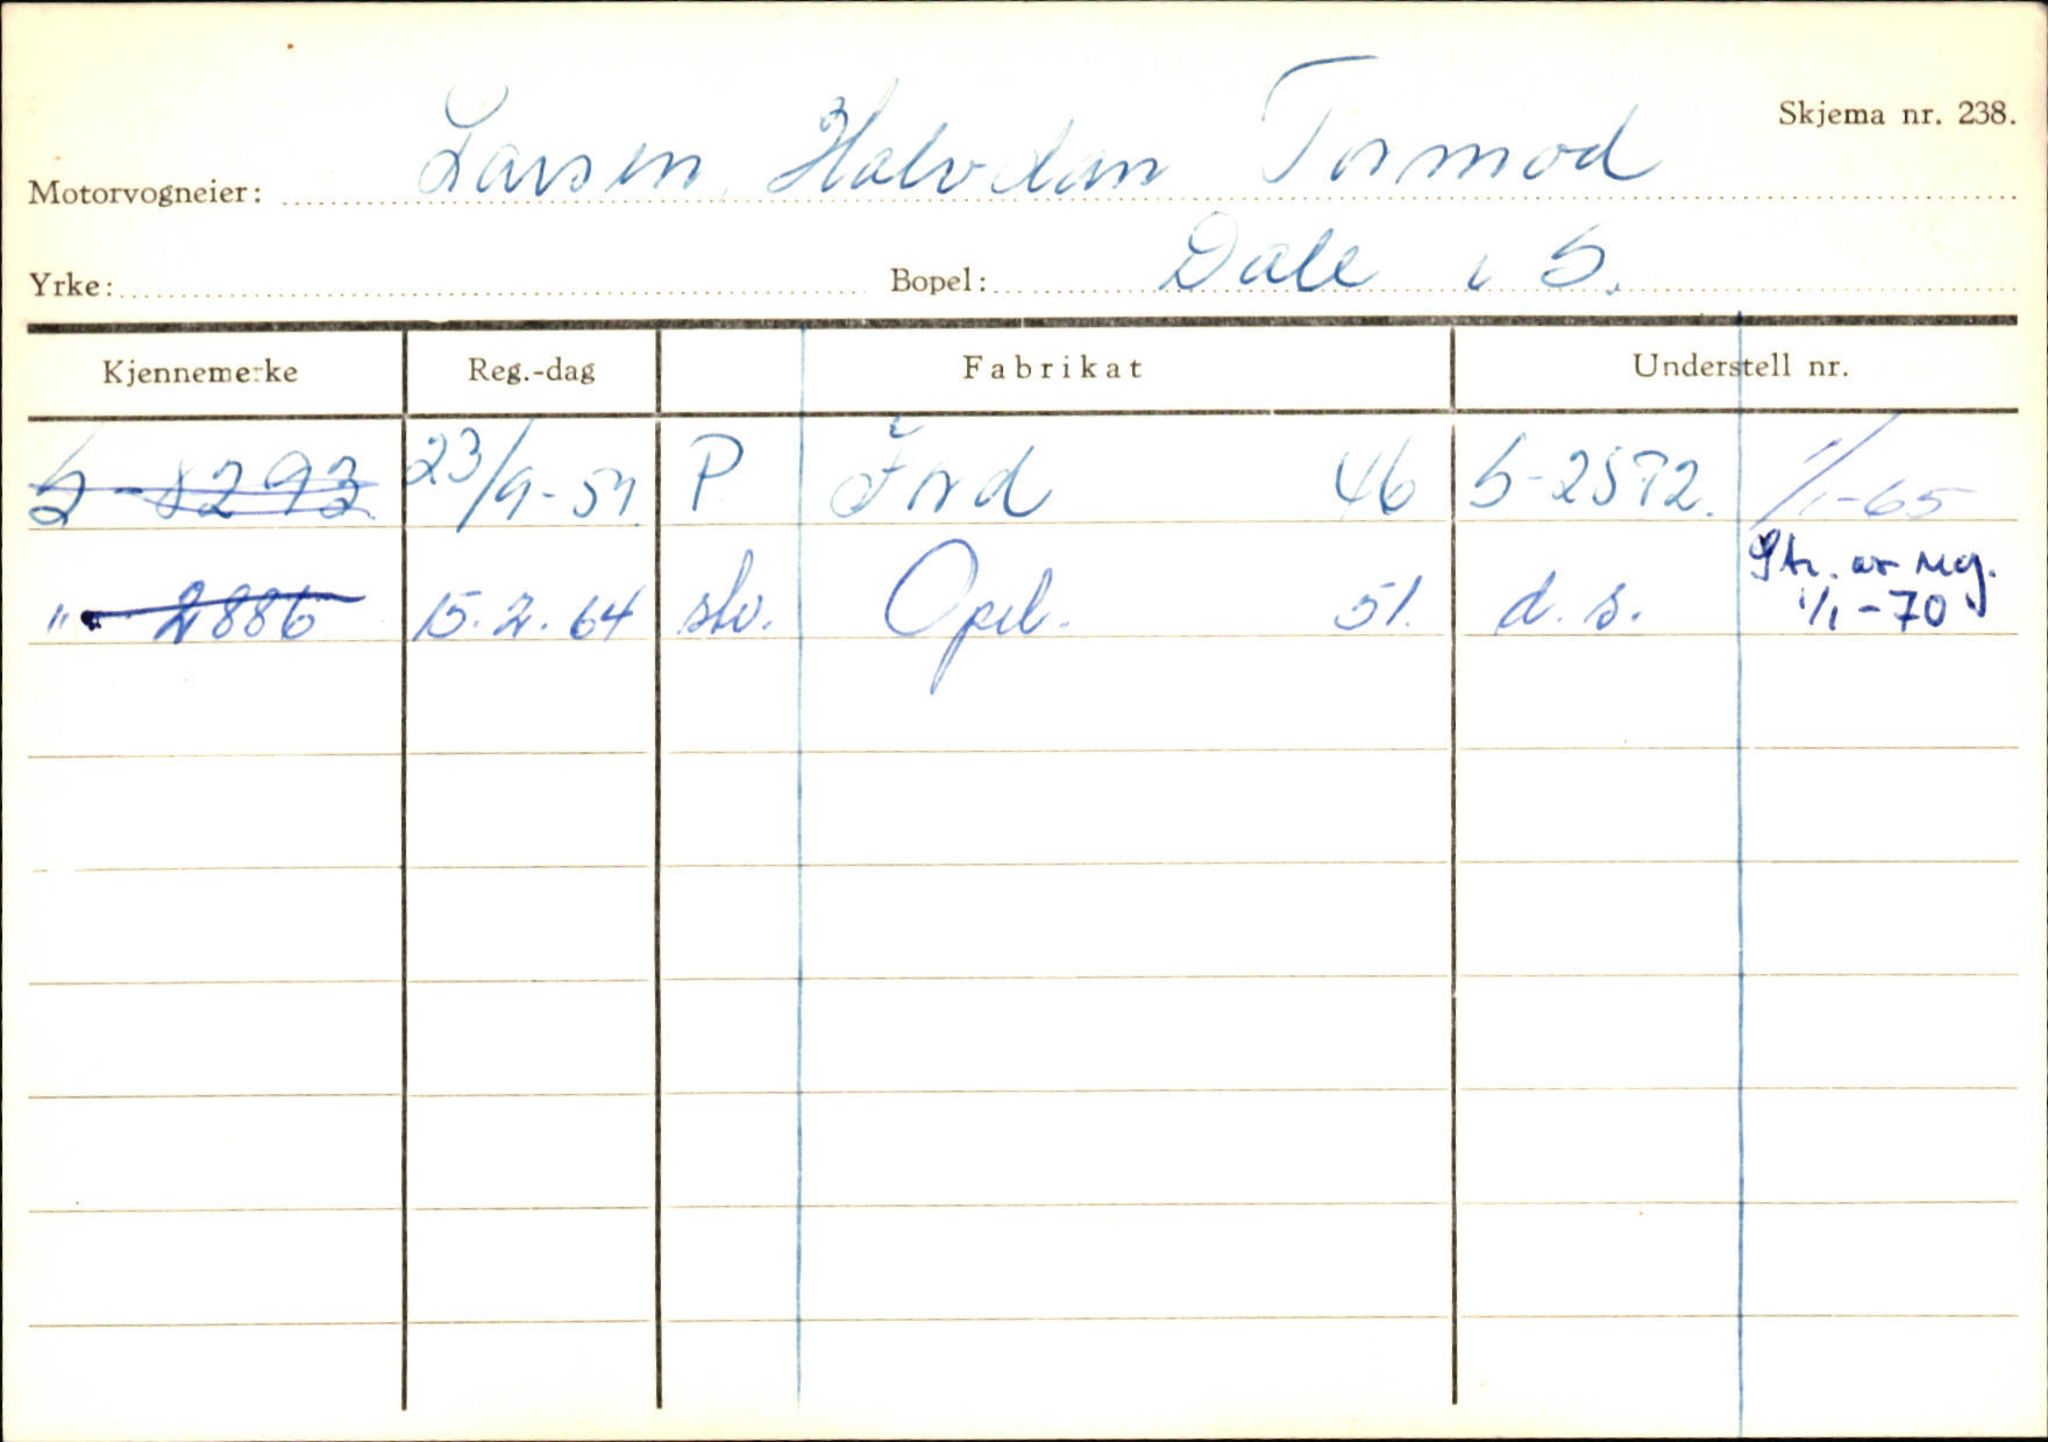 Skjema nr. 238.
Motorvogneier: Larsen, Halvdan Tormod
Yrke: Bopel: Dale i S.
Kjennemerke Reg.-dag Fabrikat Understell nr.
S-8293 23/9-57 P Ford 46 S-2572. 1/1-65
" - 2886 15.2.64 stv. Opel. 51. d.s. Str. av reg. 1/1-70